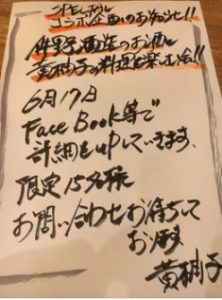 コラボ企画のお知らせ!!
伴野酒造のお酒と
黄柚子の料理を楽しむ会!!
6月17日
Face Book等で
詳細をupしていきます、
限定15名様
お問い合わせお待ちして
おります
黄柚子